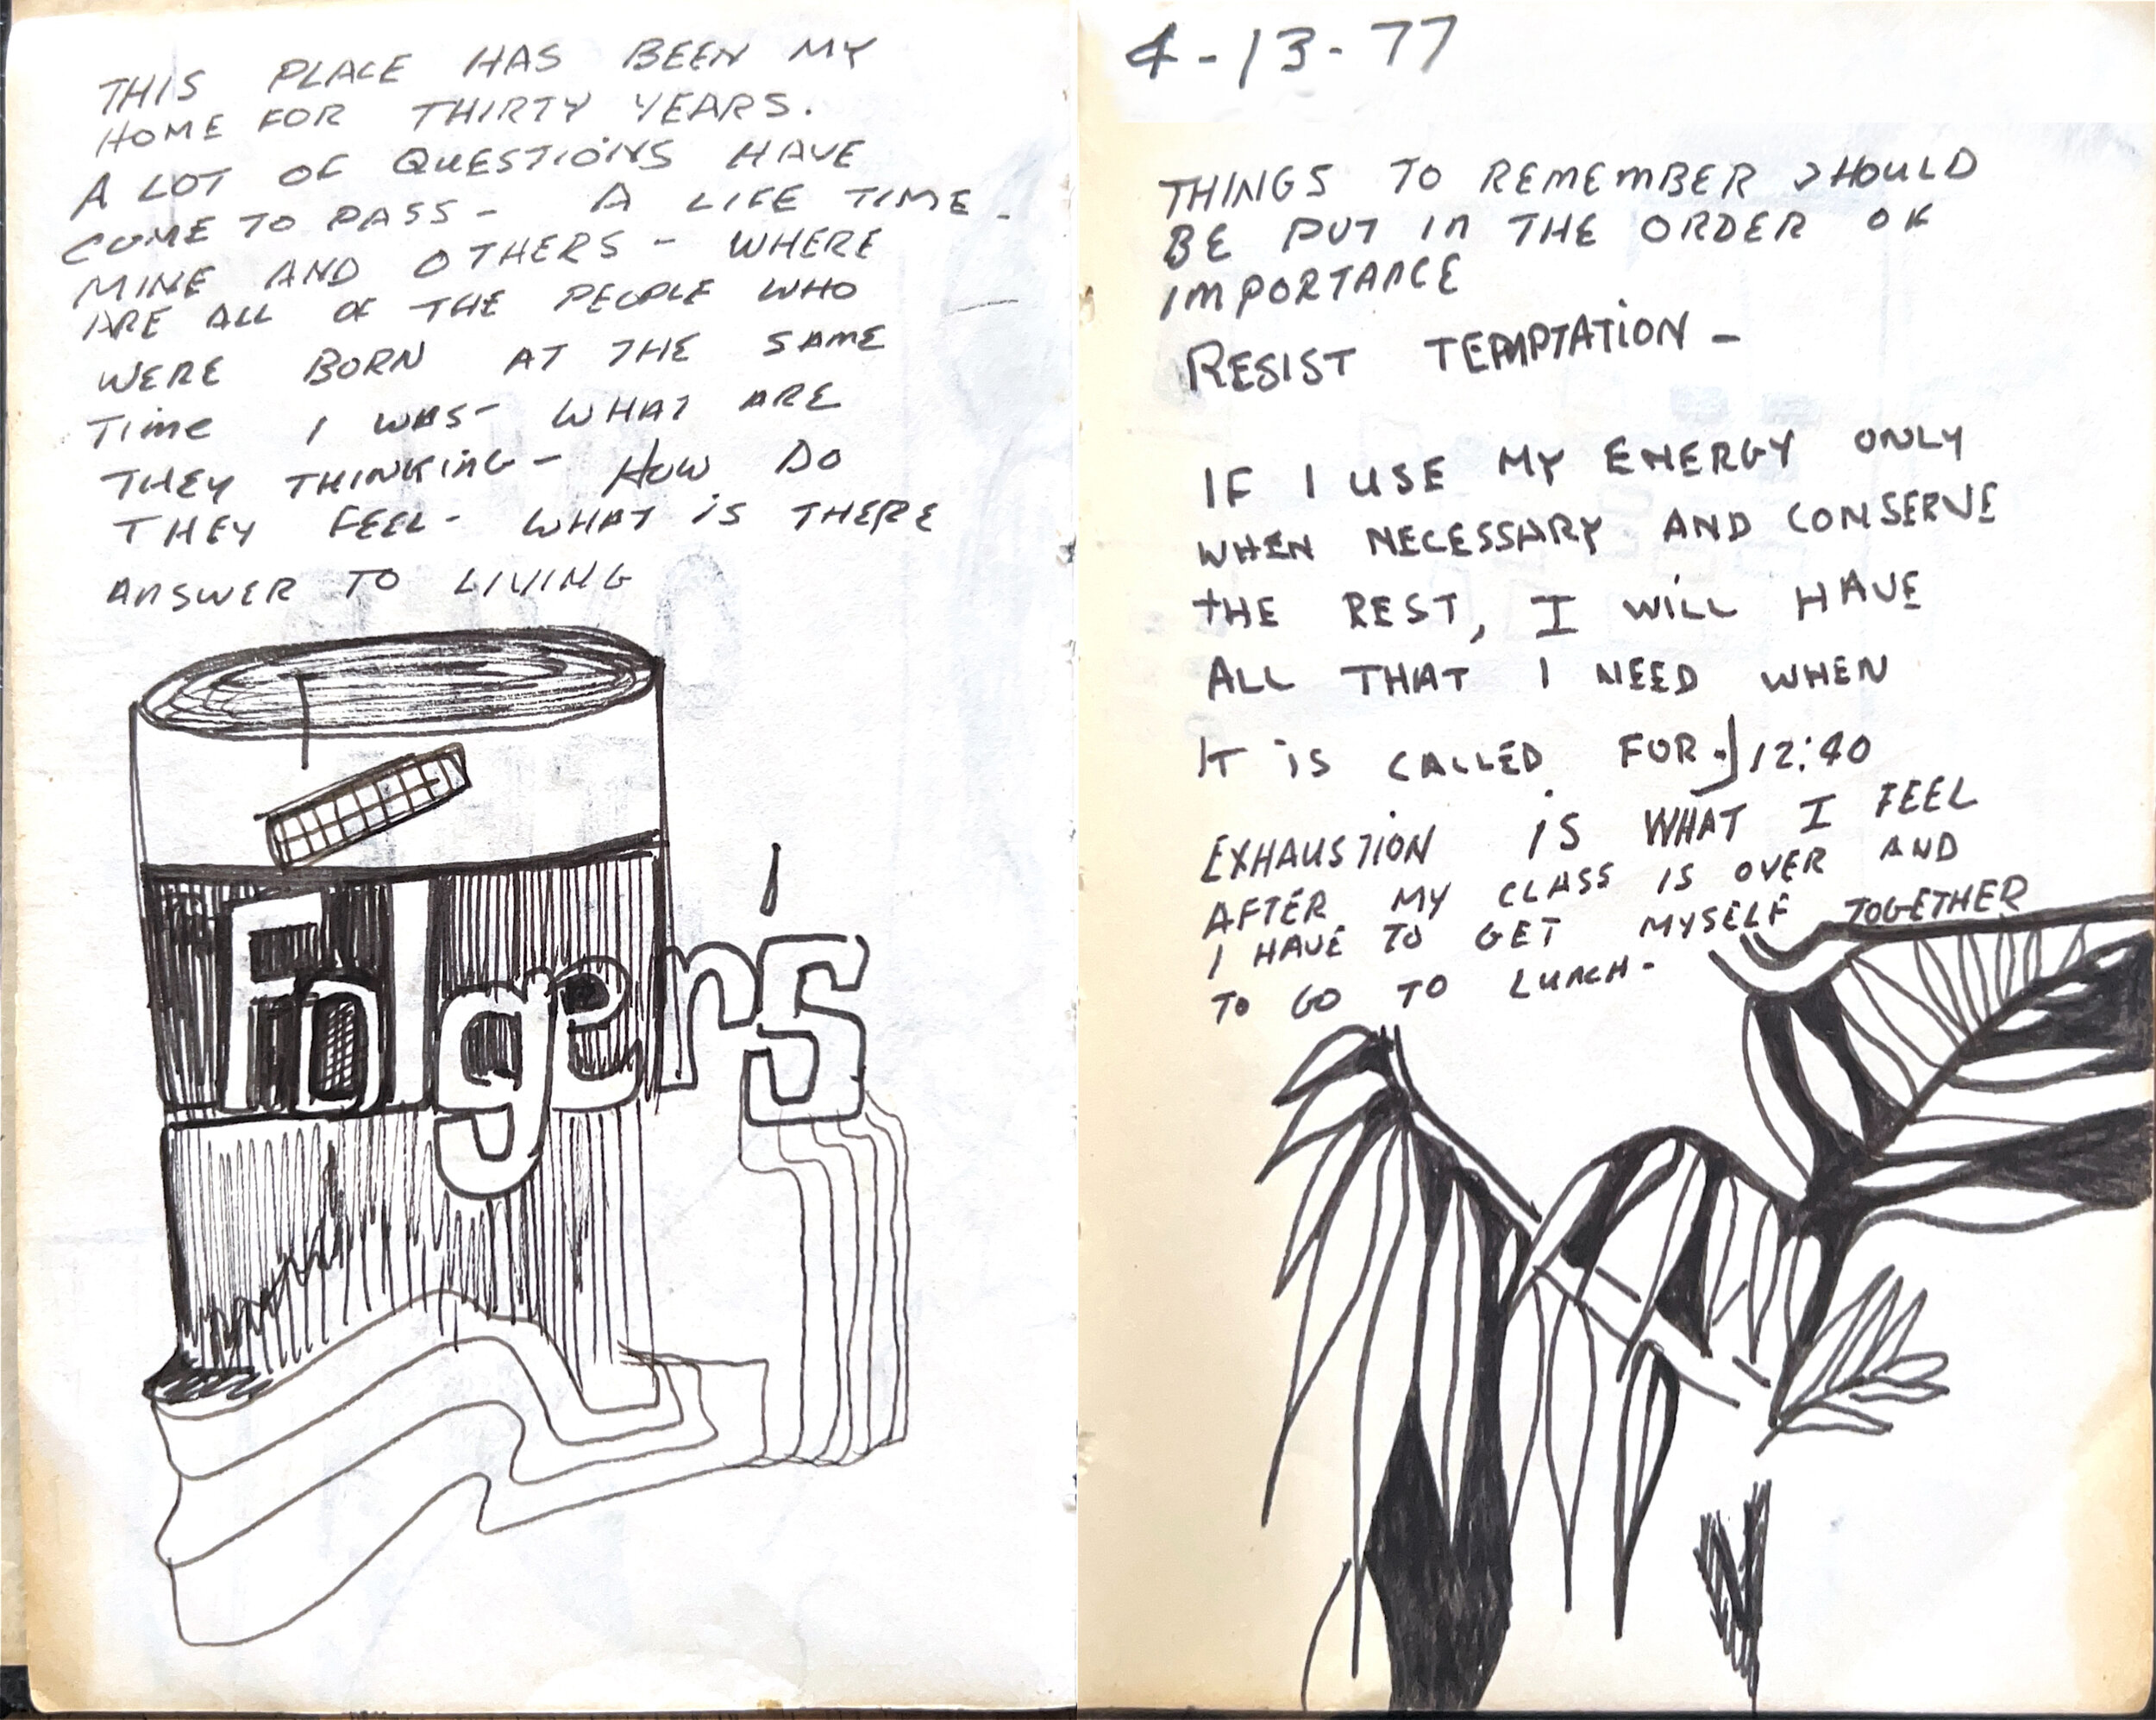 THIS PLACE HAS BEEN MY
HOME FOR THIRTY YEARS.
A LOT OF QUESTIONS HAVE
COME TO PASS - A LIFE TIME -
MINE AND OTHERS - WHERE
ARE ALL OF THE PEOPLE WHO
WERE BORN AT THE SAME
TIME I WAS - WHAT ARE
THEY THINKING - HOW DO
THEY FEEL - WHAT IS THERE
ANSWER TO LIVING
Folger's
4-13-77
THINGS TO REMEMBER SHOULD
BE PUT IN THE ORDER OF
IMPORTANCE
RESIST TEMPTATION -
IF I USE MY ENERGY ONLY
WHEN NECESSARY AND CONSERVE
THE REST, I WILL HAVE
ALL THAT I NEED WHEN
IT IS CALLED FOR. 12:40
EXHAUSTION IS WHAT I FEEL
AFTER MY CLASS IS OVER AND
I HAVE TO GET MYSELF TOGETHER
TO GO TO LUNCH -